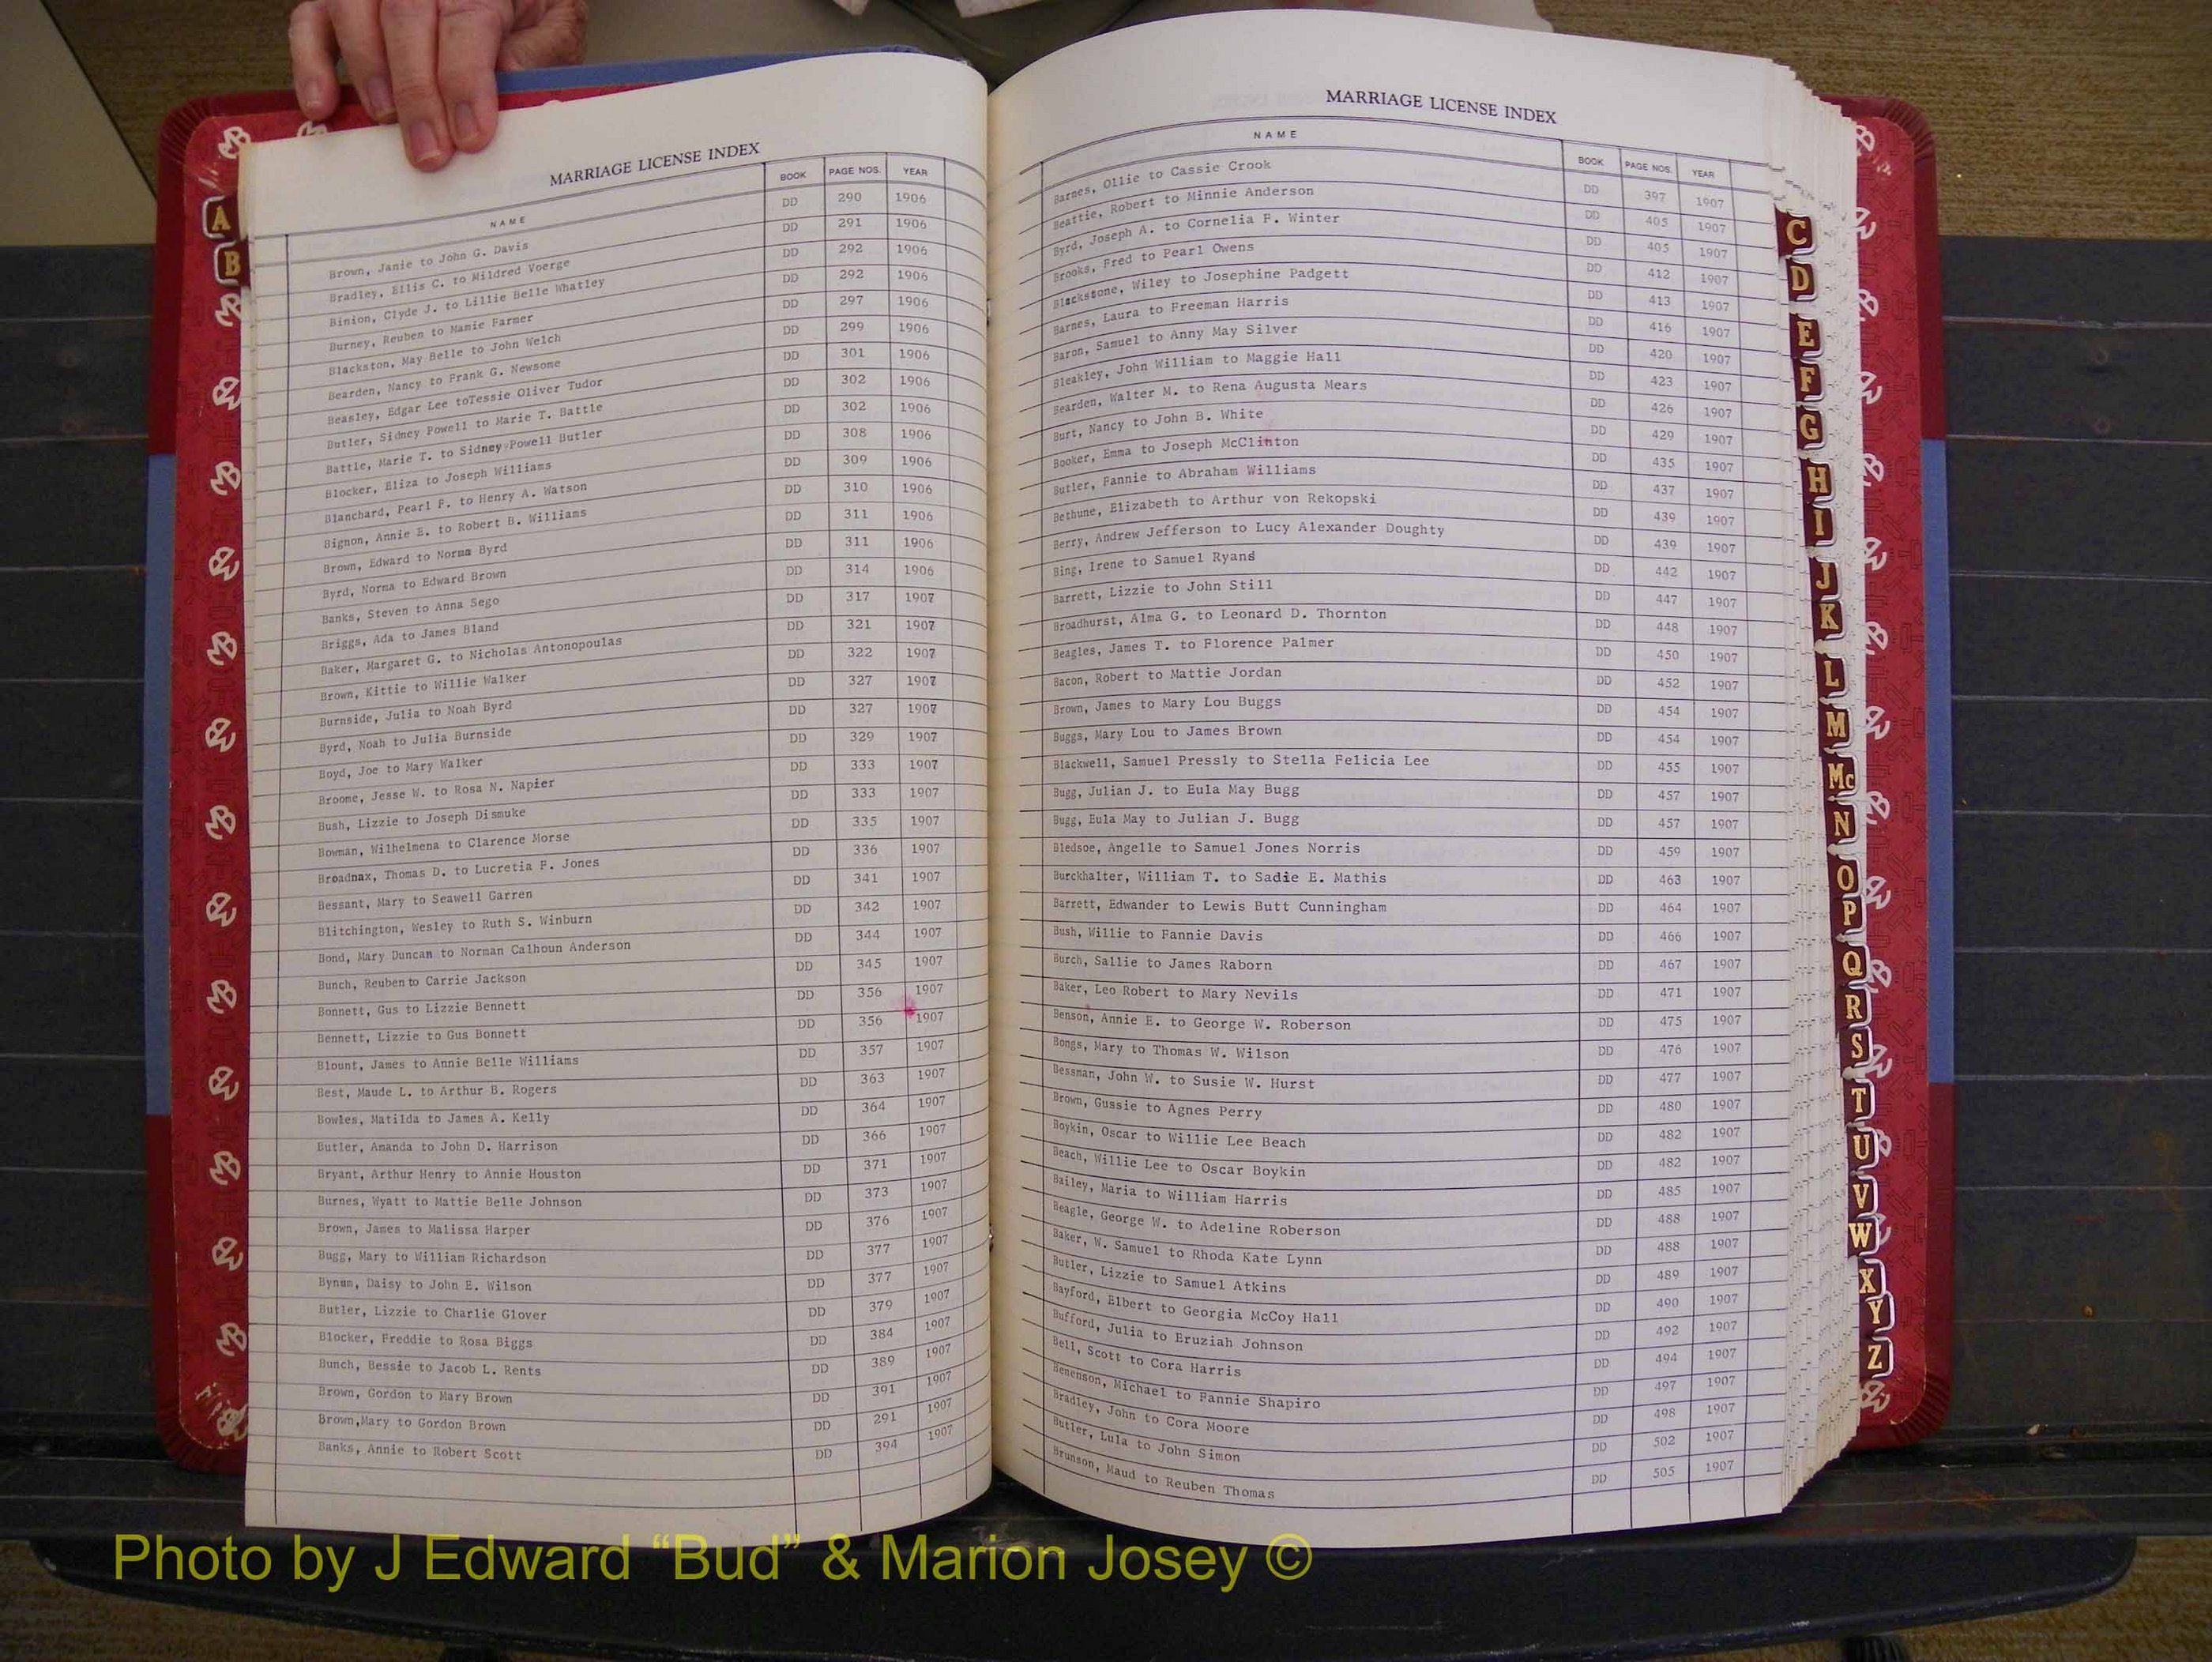 MARRIAGE LICENSE INDEX
NAME BOOK PAGE NOS. YEAR
Brown, Janie to John G. Davis DD 290 1906
Bradley, Ellis C. to Mildred Voerge DD 291 1906
Binion, Clyde J. to Lillie Belle Whatley DD 292 1906
Burney, Reuben to Mamie Farmer DD 292 1906
Blackston, May Belle to John Welch DD 297 1906
Bearden, Nancy to Frank G. Newsome DD 299 1906
Beasley, Edgar Lee toTessie Oliver Tudor DD 301 1906
Butler, Sidney Powell to Marie T. Battle DD 302 1906
Battle, Marie T. to Sidney Powell Butler DD 302 1906
Blocker, Eliza to Joseph Williams DD 308 1906
Blanchard, Pearl F. to Henry A. Watson DD 309 1906
Bignon, Annie E. to Robert B. Williams DD 310 1906
Brown, Edward to Norma Byrd DD 311 1906
Byrd, Norma to Edward Brown DD 311 1906
Banks, Steven to Anna Sego DD 314 1906
Briggs, Ada to James Bland DD 317 1907
Baker, Margaret G. to Nicholas Antonopoulas DD 321 1907
Brown, Kittie to Willie Walker DD 322 1907
Burnside, Julia to Noah Byrd DD 327 1907
Byrd, Noah to Julia Burnside DD 327 1907
Boyd, Joe to Mary Walker DD 329 1907
Broome, Jesse W. to Rosa N. Napier DD 333 1907
Bush, Lizzie to Joseph Dismuke DD 333 1907
Bowman, Wilhelmena to Clarence Morse DD 335 1907
Broadnax, Thomas D. to Lucretia F. Jones DD 336 1907
Bessant, Mary to Seawell Garren DD 341 1907
Blitchington, Wesley to Ruth S. Winburn DD 342 1907
Bond, Mary Duncan to Norman Calhoun Anderson DD 344 1907
Bunch, Reuben to Carrie Jackson DD 345 1907
Bonnett, Gus to Lizzie Bennett DD 356 1907
Bennett, Lizzie to Gus Bonnett DD 356 1907
Blount, James to Annie Belle Williams DD 357 1907
Best, Maude L. to Arthur B. Rogers DD 363 1907
Bowles, Matilda to James A. Kelly DD 364 1907
Butler, Amanda to John D. Harrison DD 366 1907
Bryant, Arthur Henry to Annie Houston DD 371 1907
Burnes, Wyatt to Mattie Belle Johnson DD 373 1907
Brown, James to Malissa Harper DD 376 1907
Bugg, Mary to William Richardson DD 377 1907
Bynum, Daisy to John E. Wilson DD 377 1907
Butler, Lizzie to Charlie Glover DD 379 1907
Blocker, Freddie to Rosa Biggs DD 384 1907
Bunch, Bessie to Jacob L. Rents DD 389 1907
Brown, Gordon to Mary Brown DD 391 1907
Brown,Mary to Gordon Brown DD 291 1907
Banks, Annie to Robert Scott DD 394 1907
MARRIAGE LICENSE INDEX
NAME BOOK PAGE NOS. YEAR
Barnes, Ollie to Cassie Crook DD 397 1907
Beattie, Robert to Minnie Anderson DD 405 1907
Byrd, Joseph A. to Cornelia F. Winter DD 405 1907
Brooks, Fred to Pearl Owens DD 412 1907
Blackstone, Wiley to Josephine Padgett DD 413 1907
Barnes, Laura to Freeman Harris DD 416 1907
Baron, Samuel to Anny May Silver DD 420 1907
Bleakley, John William to Maggie Hall DD 423 1907
Bearden, Walter M. to Rena Augusta Mears DD 426 1907
Burt, Nancy to John B. White DD 429 1907
Booker, Emma to Joseph McClinton DD 435 1907
Butler, Fannie to Abraham Williams DD 437 1907
Bethune, Elizabeth to Arthur von Rekopski DD 439 1907
Berry, Andrew Jefferson to Lucy Alexander Doughty DD 439 1907
Bing, Irene to Samuel Ryans DD 442 1907
Barrett, Lizzie to John Still DD 447 1907
Broadhurst, Alma G. to Leonard D. Thornton DD 448 1907
Beagles, James T. to Florence Palmer DD 450 1907
Bacon, Robert to Mattie Jordan DD 452 1907
Brown, James to Mary Lou Buggs DD 454 1907
Buggs, Mary Lou to James Brown DD 454 1907
Blackwell, Samuel Pressly to Stella Felicia Lee DD 455 1907
Bugg, Julian J. to Eula May Bugg DD 457 1907
Bugg, Eula May to Julian J. Bugg DD 457 1907
Bledsoe, Angelle to Samuel Jones Norris DD 459 1907
Burckhalter, William T. to Sadie E. Mathis DD 463 1907
Barrett, Edwander to Lewis Butt Cunningham DD 464 1907
Bush, Willie to Fannie Davis DD 466 1907
Burch, Sallie to James Raborn DD 467 1907
Baker, Leo Robert to Mary Nevils DD 471 1907
Benson, Annie E. to George W. Roberson DD 475 1907
Bongs, Mary to Thomas W. Wilson DD 476 1907
Bessman, John W. to Susie W. Hurst DD 477 1907
Brown, Gussie to Agnes Perry DD 480 1907
Boykin, Oscar to Willie Lee Beach DD 482 1907
Beach, Willie Lee to Oscar Boykin DD 482 1907
Bailey, Maria to William Harris DD 485 1907
Beagle, George W. to Adeline Roberson DD 488 1907
Baker, W. Samuel to Rhoda Kate Lynn DD 488 1907
Butler, Lizzie to Samuel Atkins DD 489 1907
Bayford, Elbert to Georgia McCoy Hall DD 490 1907
Bufford, Julia to Eruziah Johnson DD 492 1907
Bell, Scott to Cora Harris DD 494 1907
Benenson, Michael to Fannie Shapiro DD 497 1907
Bradley, John to Cora Moore DD 498 1907
Butler, Lula to John Simon DD 502 1907
Brunson, Maud to Reuben Thomas DD 505 1907
A
B
C
D
E
F
G
H
I
J
K
L
M
Mc
N
O
P
Q
R
S
T
U
V
W
X
Y
Z
Photo by J Edward “Bud” & Marion Josey ©